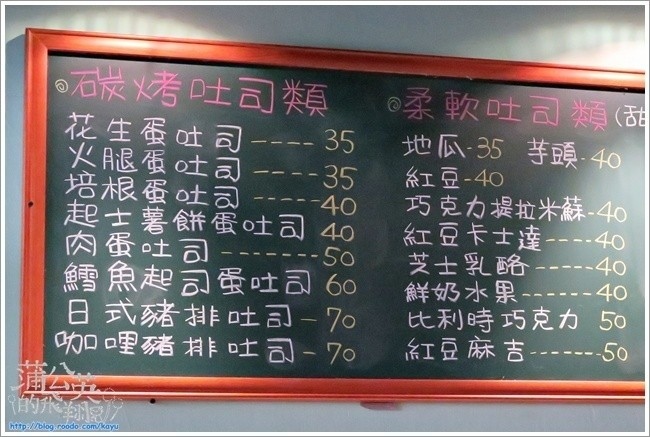 ◎碳烤吐司類
花生蛋吐司-----35
火腿蛋吐司-----35
培根蛋吐司-----40
起士薯餅蛋吐司 40
肉蛋吐司-------50
鱈魚起司蛋吐司 60
日式豬排吐司-70
咖哩豬排吐司-70
◎柔軟吐司類(甜
地瓜-35 芋頭-40
紅豆-40
巧克力提拉米蘇-40
紅豆卡士達----40
芝士乳酪-----40
鮮奶水果-----40
比利時巧克力 50
紅豆麻吉-------50
蒲公英
的飛翔屋
http://blog.roodo.com/kayu